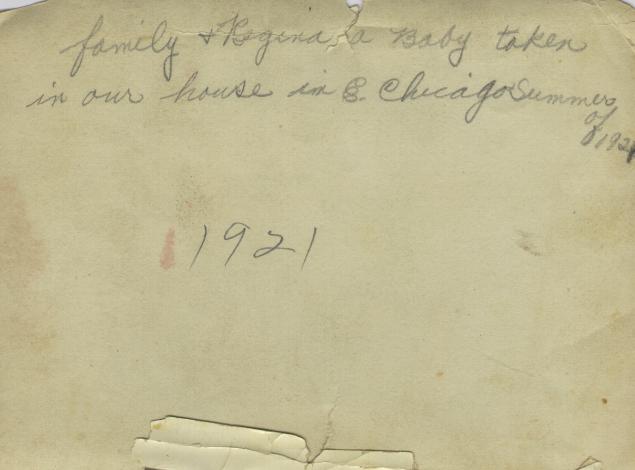 family & Regina, a Baby taken
in our house in E. Chicago Summer
of
1921
1921